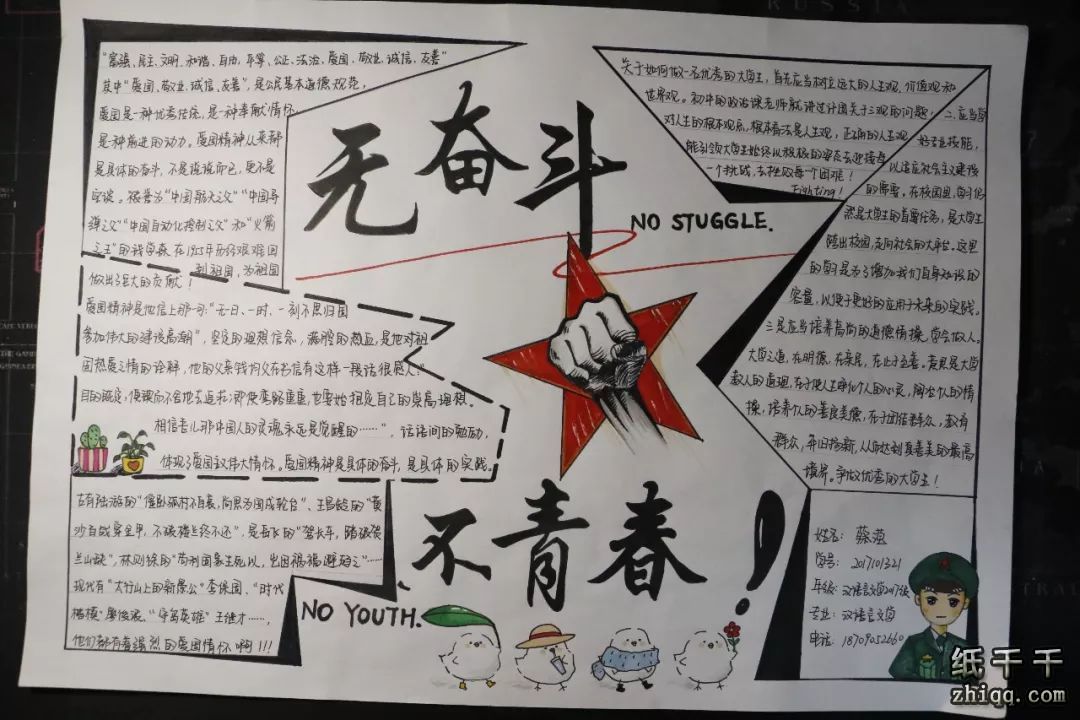 "富强、民主、文明、和谐、自由、平等、公正、法治、爱国、敬业、诚信、友善"
其中"爱国、敬业、诚信、友善",是公民基本道德规范,
爱国是一种优秀信念,是一种奉献情怀
是种前进的动力。爱国精神从来都
是具体的奋斗,不是说说而已,更不是
空谈。被誉为"中国航天之父""中国导
弹之父""中国自动化控制之父"和"火箭
之王"的钱学森在1955年历经艰难回
到祖国,为祖国
做出了巨大的贡献!
爱国精神是他信上那一句:"无一日、一时、一刻不思归国
参加伟大的建设高潮",坚定的理想信念,满腔的热血,是他对祖
国热爱之情的诠释,他的父亲钱均夫在书信有这样一段话很感人:"
目的既定,便锲而不舍地去追求;即使弯路重重,也要始终坚定自己的崇高理想。
相信吾儿那中国人的灵魂永远是觉醒的……",话语间的勉励,
体现了爱国这伟大情怀,爱国精神是具体的奋斗,是具体的实践。
古有陆游的"僵卧孤村不自哀,尚思为国戍轮台"、王昌龄的"黄
沙百战穿金甲,不破楼兰终不还",是岳飞的"驾长车,踏破贺
兰山缺",林则徐的"苟利国家生死以,岂因祸福避趋之"……
现代有"太行山上的新愚公"李保国、"时代
楷模"廖俊波、"守岛英雄"王继才……,
他们都有着强烈的爱国情怀啊!!!
无奋斗
NO STUGGLE.
不青春!
NO YOUTH.
关于如何做一名优秀的大学生,首先应当树立远大的人生观、价值观和
世界观。初中的政治课老师就讲过许国关于三观的问题,
对人生的根本观点,根本看法是人生观,正确的人生观
能引领大学生始终以积极的姿态去迎接每
一个挑战,去挫败每个困难!
Fighting!
二、应当努
好专业技能,
以适应社会主义建设
的需要。在校园里,学习仍
然是大学生的首要任务,是大学生
踏出校园,走向社会的大平台。这里
的学习是为了增加我们自身知识的
容量,以便于更好的应用于未来的实践。
三是应当培养高尚的道德情操,学会做人。
大学之道,在明德,在亲民,在止于至善。意思是大学
教人的道理,在于使人净化个人的心灵,陶冶个人的情
操,培养个人的善良美德,在于团结群众,教育
群众,弃旧扬新,从而达到真善美的最高
境界。争做优秀的大学生!
姓名:
学号:2017101321
年级:汉语言文学2017级
专业:汉语言文学
电话:18709052660
纸千千
zhiqq.com